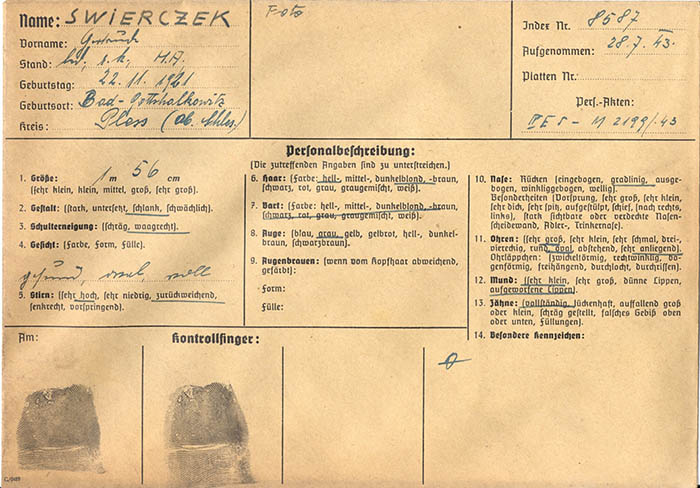 Name: SWIERCZEK
Vorname: Gertrud
Stand: led., r.k., H.A.
Geburtstag: 22.11.1921
Geburtsort: Bad-Gottschalkowitz
Kreis: Pless (ob. Schles.)
Foto
Index Nr. 8587
Aufgenommen: 28.7.43.
Platten Nr.
Pers.-Akten:
M 2199/43
Personalbeschreibung:
(Die zutreffenden Angaben sind zu unterstreichen.)
1. Größe: 1 m 56 cm
(sehr klein, klein, mittel, groß, sehr groß).
2. Gestalt: (stark, untersetzt, schlank, schwächlich).
3. Schulterneigung: (schräg, waagrecht).
4. Gesicht: (Farbe, Form, Fülle).
gesund, oval, voll
5. Stirn: (sehr hoch, sehr niedrig, zurückweichend,
senkrecht, vorspringend).
6. Haar: (Farbe: hell-, mittel-, dunkelblond, -braun,
schwarz, rot, grau, graugemischt, weiß).
7. Bart: (Farbe: hell-, mittel-, dunkelblond, -braun,
schwarz, rot, grau, graugemischt, weiß).
8. Auge: (blau, grau, gelb, gelbrot, hell-, dunkel-
braun, schwarzbraun).
9. Augenbrauen: (wenn vom Kopfhaar abweichend,
gefärbt):
Form:
Fülle:
10. Nase: Rücken (eingebogen, gradlinig, ausge-
bogen, winkliggebogen, wellig).
Besonderheiten (Vorsprung, sehr groß, sehr klein,
sehr dick, sehr spitz, aufgestülpt, schief, (nach rechts,
links), stark sichtbare oder verdeckte Nasen-
scheidewand, Adler-, Trinkernase).
11. Ohren: (sehr groß, sehr klein, sehr schmal, drei-
viereckig, rund, oval, abstehend, sehr anliegend).
Ohrläppchen: (zwickelförmig, rechtwinklig, bo-
genförmig, freihängend, durchlocht, durchrissen).
12. Mund: (sehr klein, sehr groß, dünne Lippen,
aufgeworfene Lippen).
13. Zähne: (vollständig, lückenhaft, auffallend groß
oder klein, schräg gestellt, falsches Gebiß oben
oder unten, Füllungen).
14. Besondere Kennzeichen:
Am:
Kontrollfinger: